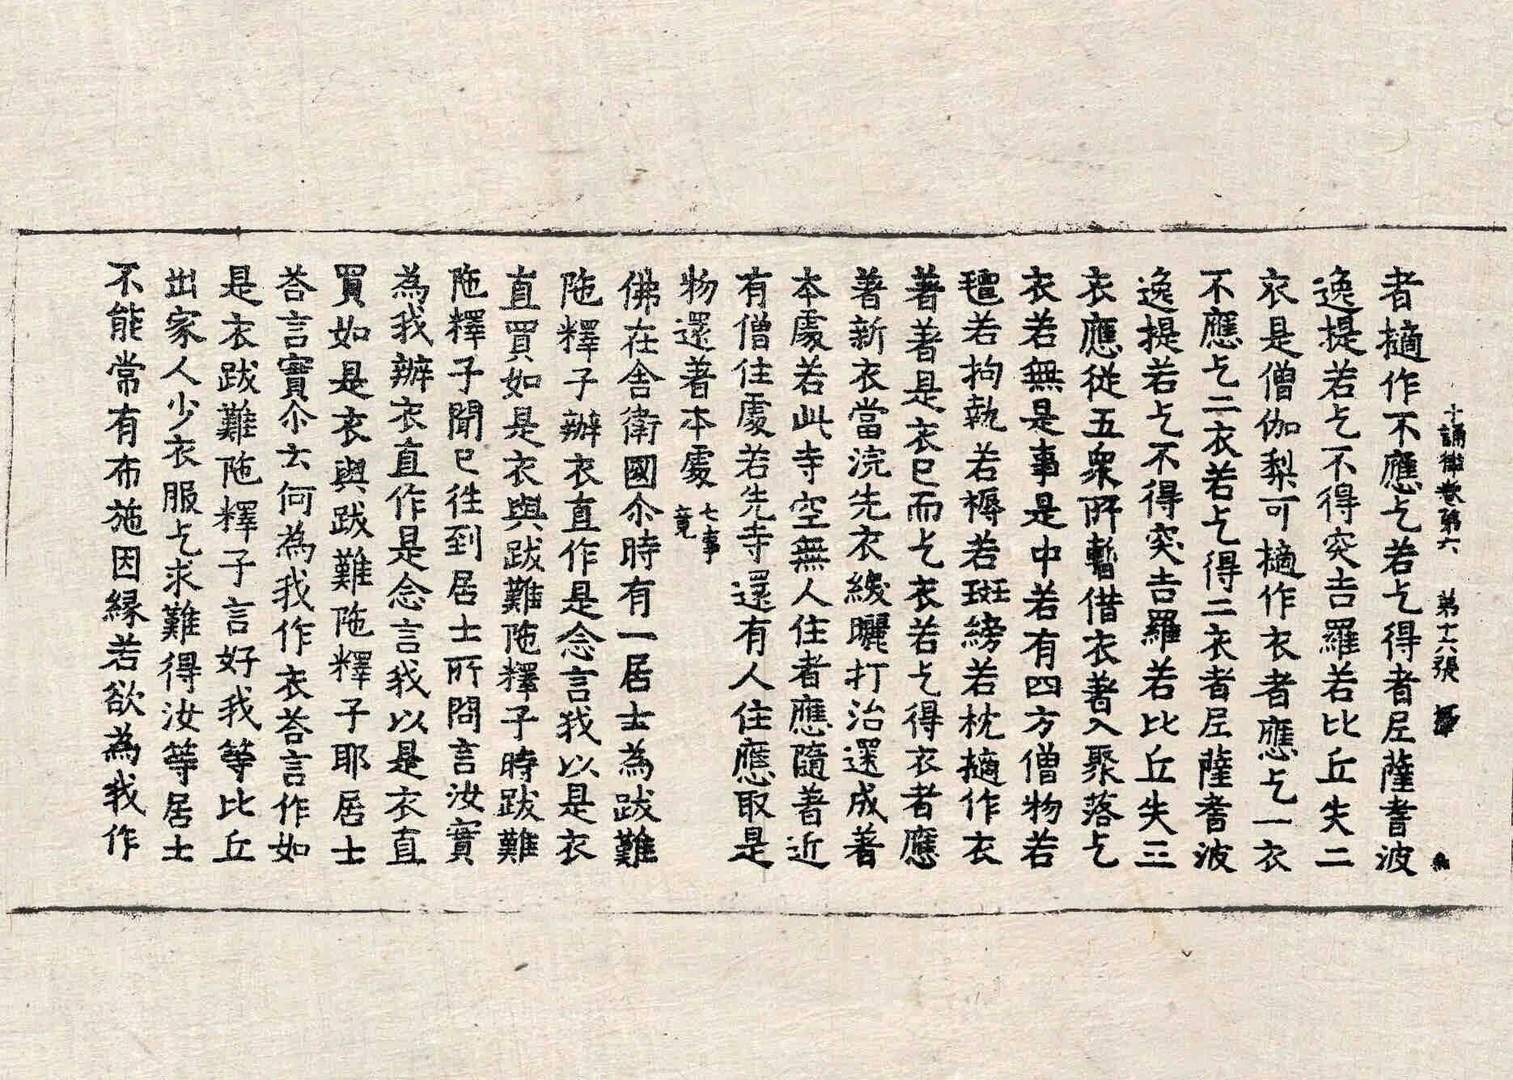 十誦律卷第六 第十六張
者擿作不應乞若乞得者尼薩耆波
逸提若乞不得突吉羅若比丘失二
衣是僧伽梨可擿作衣者應乞一衣
不應乞二衣若乞得二衣者尼薩耆波
逸提若乞不得突吉羅若比丘失三
衣應從五衆所暫借衣著入聚落乞
衣若無是事是中若有四方僧物若
氊若拘執若褥若班縍若枕擿作衣
著著是衣已而乞衣若乞得衣者應
著新衣當浣先衣緵曬打治還成著
本處若此寺空無人住者應隨著近
有僧住處若先寺還有人住應取是
物還著本處 七事竟
佛在舍衛國尒時有一居士為跋難
陁釋子辦衣直作是念言我以是衣
直買如是衣與跋難陁釋子時跋難
陁釋子聞已徃到居士所問言汝實
為我辦衣直作是念言我以是衣直
買如是衣與跋難陁釋子耶居士
荅言實尒云何為我作衣荅言作如
是衣跋難陁釋子言好我等比丘
出家人少衣服乞求難得汝等居士
不能常有布施因縁若欲為我作